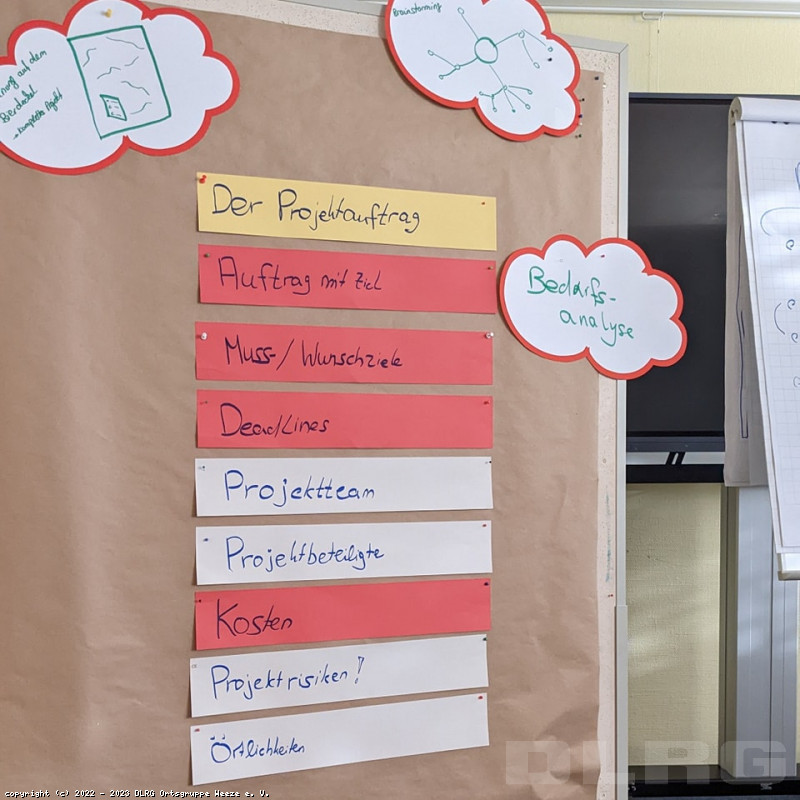 Brainstorming
auf dem
Der Projektauftrag
Auftrag mit Ziel
Muss-/Wunschziele
Deadlines
Projektteam
Projektbeteiligte
Kosten
Projektrisiken!
Örtlichkeiten
Bedarfs-
analyse
DLRG
copyright (c) 2022 - 2023 DLRG Ortsgruppe Weeze e. V.